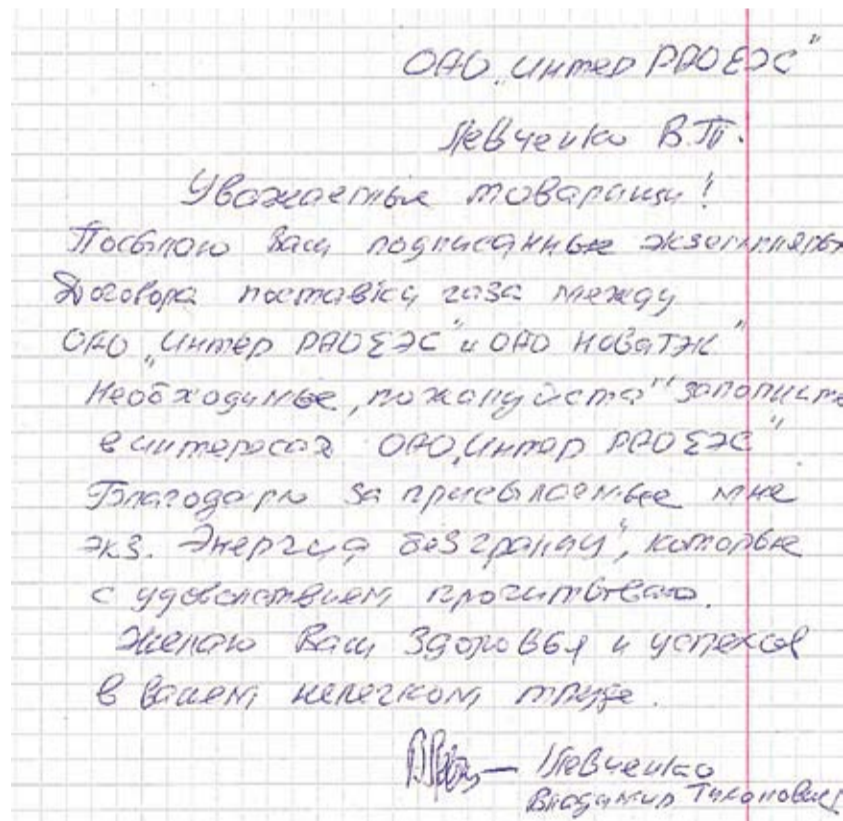 ОАО „Интер РАО ЕЭС"
Левченко В.Т.
Уважаемые товарищи!
Посылаю Вам подписанные экземпляры
Договора поставки газа между
ОАО „Интер РАО ЕЭС" и ОАО НОВАТЭК"
Необходимые, пожалуйста" заполните
в интересах ОАО „Интер РАО ЕЭС"
Благодарю за присылаемые мне
экз. Энергия без границ", которые
с удовольствием прочитываю.
Желаю Вам здоровья и успехов
в вашем нелегком труде.
Левченко
Владимир Тихонович